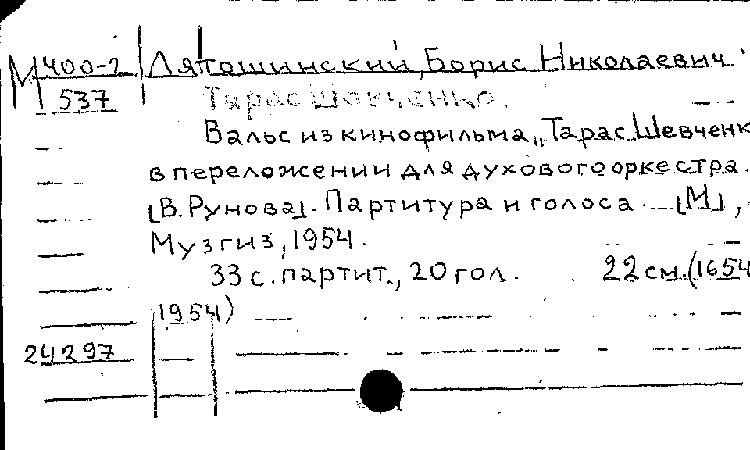 М 400-2 Лятошинский, Борис Николаевич
537 Тарас Шевченко.
Вальс из кинофильма „Тарас Шевченк
в переложении для духового оркестра.
[В. Рунова]. Партитура и голоса [М],
Музгиз, 1954.
33 с. партит., 20 гол. 22 см. (1654
1954)
24297